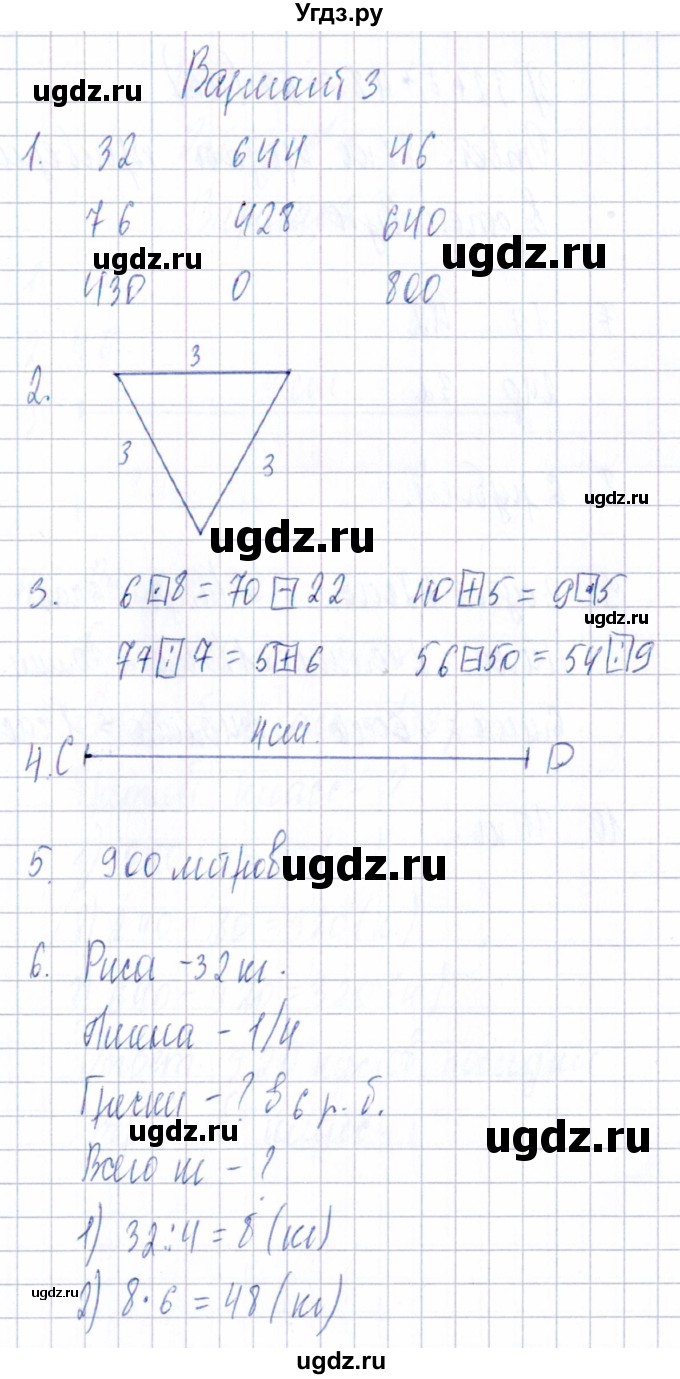 Угдз.ру
ugdz.ru
Вариант 3
1. 32 644 46
76 428 640
ugdz.ru
ugdz.ru
430 0 800
2.
3
3
3
ugdz.ru
ugdz.ru
3. 6 · 8 = 70 - 22 40 + 5 = 9 · 5
ugdz.ru
77 : 7 = 5 + 6 56 - 50 = 54 : 9
4. C 4 см. D
5. 900 метров
ugdz.ru
6. Риса - 32 кг.
Пшена - 1/4
Гречки - ? в 6 р. б.
ugdz.ru
ugdz.ru
Всего кг - ?
1) 32 : 4 = 8 (кг)
ugdz.ru
2) 8 · 6 = 48 (кг)
ugdz.ru